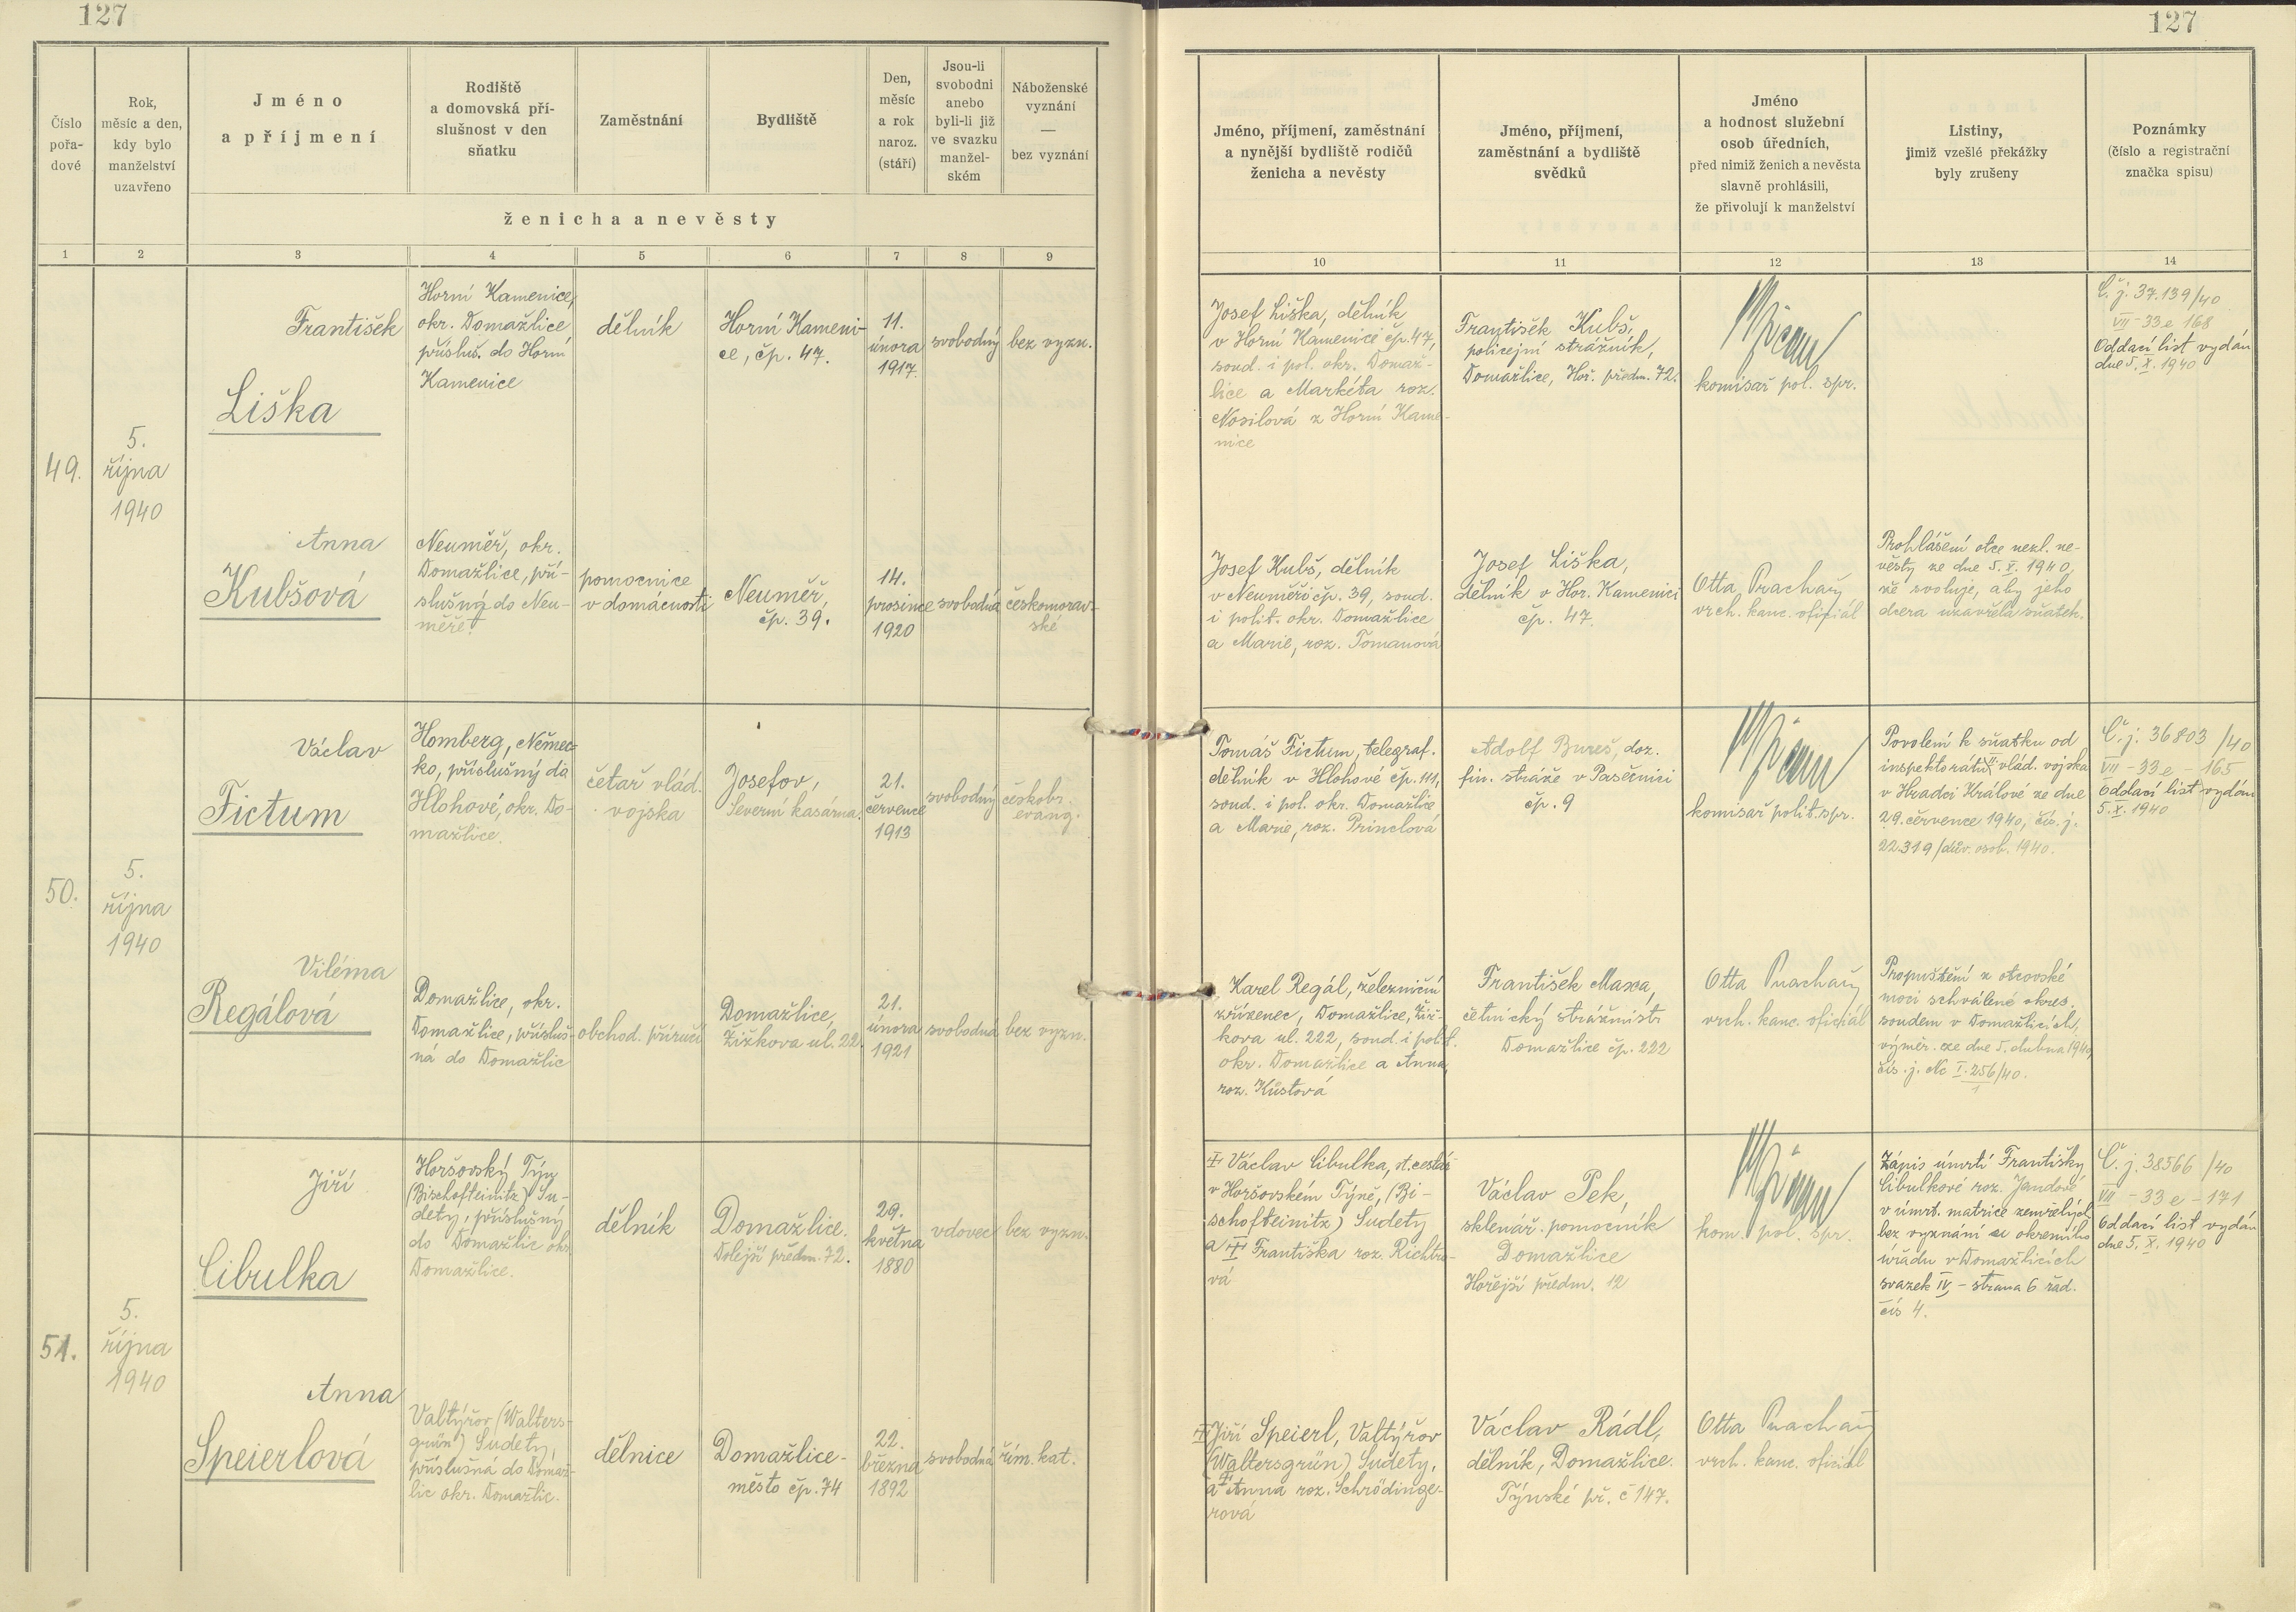 127
127
Číslo
pořa-
dové
Rok,
měsíc a den,
kdy bylo
manželství
uzavřeno
Jméno
a příjmení
Rodiště
a domovská pří-
slušnost v den
sňatku
Zaměstnání
Bydliště
Den,
měsíc
a rok
naroz.
(stáří)
Jsou-li
svobodni
anebo
byli-li již
ve svazku
manžel-
ském
Náboženské
vyznání
—
bez vyznání
ženicha a nevěsty
Jméno, příjmení, zaměstnání
a nynější bydliště rodičů
ženicha a nevěsty
Jméno, příjmení,
zaměstnání a bydliště
svědků
Jméno
a hodnost služební
osob úředních,
před nimiž ženich a nevěsta
slavně prohlásili,
že přivolují k manželství
Listiny,
jimiž vzešlé překážky
byly zrušeny
Poznámky
(číslo a registrační
značka spisu)
1 2 3 4 5 6 7 8 9 10 11 12 13 14
49.
5.
října
1940
František
Liška
Horní Kamenice,
okr. Domažlice
přísluš. do Horní
Kamenice
dělník
Horní Kameni-
ce, čp. 47.
11.
února
1917.
svobodný
bez vyzn.
Josef Liška, dělník
v Horní Kamenici čp. 47,
soud. i pol. okr. Domaž-
lice a Markéta roz.
Nosilová z Horní Kame-
nice
František Kubš,
policejní strážník,
Domažlice, Hoř. předm. 72.
komisař pol. spr.
Č. j. 37.139/40
VII - 33 e 168
Oddací list vydán
dne 5. X. 1940
Anna
Kubšová
Neuměř, okr.
Domažlice, pří-
slušná do Neu-
měře.
pomocnice
v domácnosti
Neuměř,
čp. 39.
14.
prosince
1920
svobodná
českomorav-
ské
Josef Kubš, dělník
v Neuměři čp. 39, soud.
i polit. okr. Domažlice
a Marie, roz. Tomanová
Josef Liška,
dělník v Hor. Kamenici
čp. 47.
Otta Prachař
vrch. kanc. oficiál
Prohlášení otce nezl. ne-
věsty ze dne 5. X. 1940,
že svoluje, aby jeho
dcera uzavřela sňatek.
50.
5.
října
1940
Václav
Fictum
Homberg, Němec-
ko, příslušný do
Hlohové, okr. Do-
mažlice.
četař vlád.
vojska
Josefov,
Severní kasárna.
21.
července
1913
svobodný
českobr.
evang.
Tomáš Fictum, telegraf.
dělník v Hlohové čp. 111,
soud. i pol. okr. Domažlice
a Marie, roz. Princlová
Adolf Bureš, doz.
fin. stráže v Pasečnici
čp. 9
komisař polit. spr.
Povolení k sňatku od
inspektorátu vlád. vojska
v Hradci Králové ze dne
29. července 1940, čís. j.
22.319/dův. osob. 1940.
Č. j. 36803/40
VII - 33 e - 165
Oddací list vydán
5. X. 1940
Viléma
Regálová
Domažlice, okr.
Domažlice, přísluš-
ná do Domažlic
obchod. příručí
Domažlice,
Žižkova ul. 222
21.
února
1921
svobodná
bez vyzn.
Karel Regál, železniční
zřízenec, Domažlice, Žiž-
kova ul. 222, soud. i polit.
okr. Domažlice a Anna,
roz. Kůstová
František Maxa,
četnický strážmistr
Domažlice čp. 222
Otta Prachař
vrch. kanc. oficiál
Propuštění z otcovské
moci schválené okres.
soudem v Domažlicích,
výměr. ze dne 5. dubna 1940,
čís. j. Nc I. 256/40.
1
51.
5.
října
1940
Jiří
Cibulka
Horšovský Týn
(Bischofteinitz) Su-
dety, příslušný
do Domažlic okr.
Domažlice.
dělník
Domažlice.
Dolejší předm. 72.
29.
května
1880
vdovec
bez vyzn.
† Václav Cibulka, st. cestář
v Horšovském Týně, (Bi-
schofteinitz) Sudety
a † Františka roz. Richtro-
vá
Václav Pek,
sklenář. pomocník
Domažlice
Hořejší předm. 12
kom. pol. spr.
Zápis úmrtí Františky
Cibulkové roz. Jandové
v úmrt. matrice zemřelých
bez vyznání u okresního
úřadu v Domažlicích
svazek IV, - strana 6 řad.
čís 4.
Č. j. 38566/40
VII - 33 e - 171
Oddací list vydán
dne 5. X. 1940
Anna
Speierlová
Valtýřov (Walters-
grün) Sudety,
příslušná do Domaž-
lic okr. Domažlic.
dělnice
Domažlice-
město čp. 74
22.
března
1892
svobodná
řím. kat.
† Jiří Speierl, Valtýřov
(Waltersgrün) Sudety,
a † Anna roz. Schrödinge-
rová
Václav Rádl,
dělník, Domažlice.
Týnské př. č 147.
Otta Prachař
vrch. kanc. oficiál